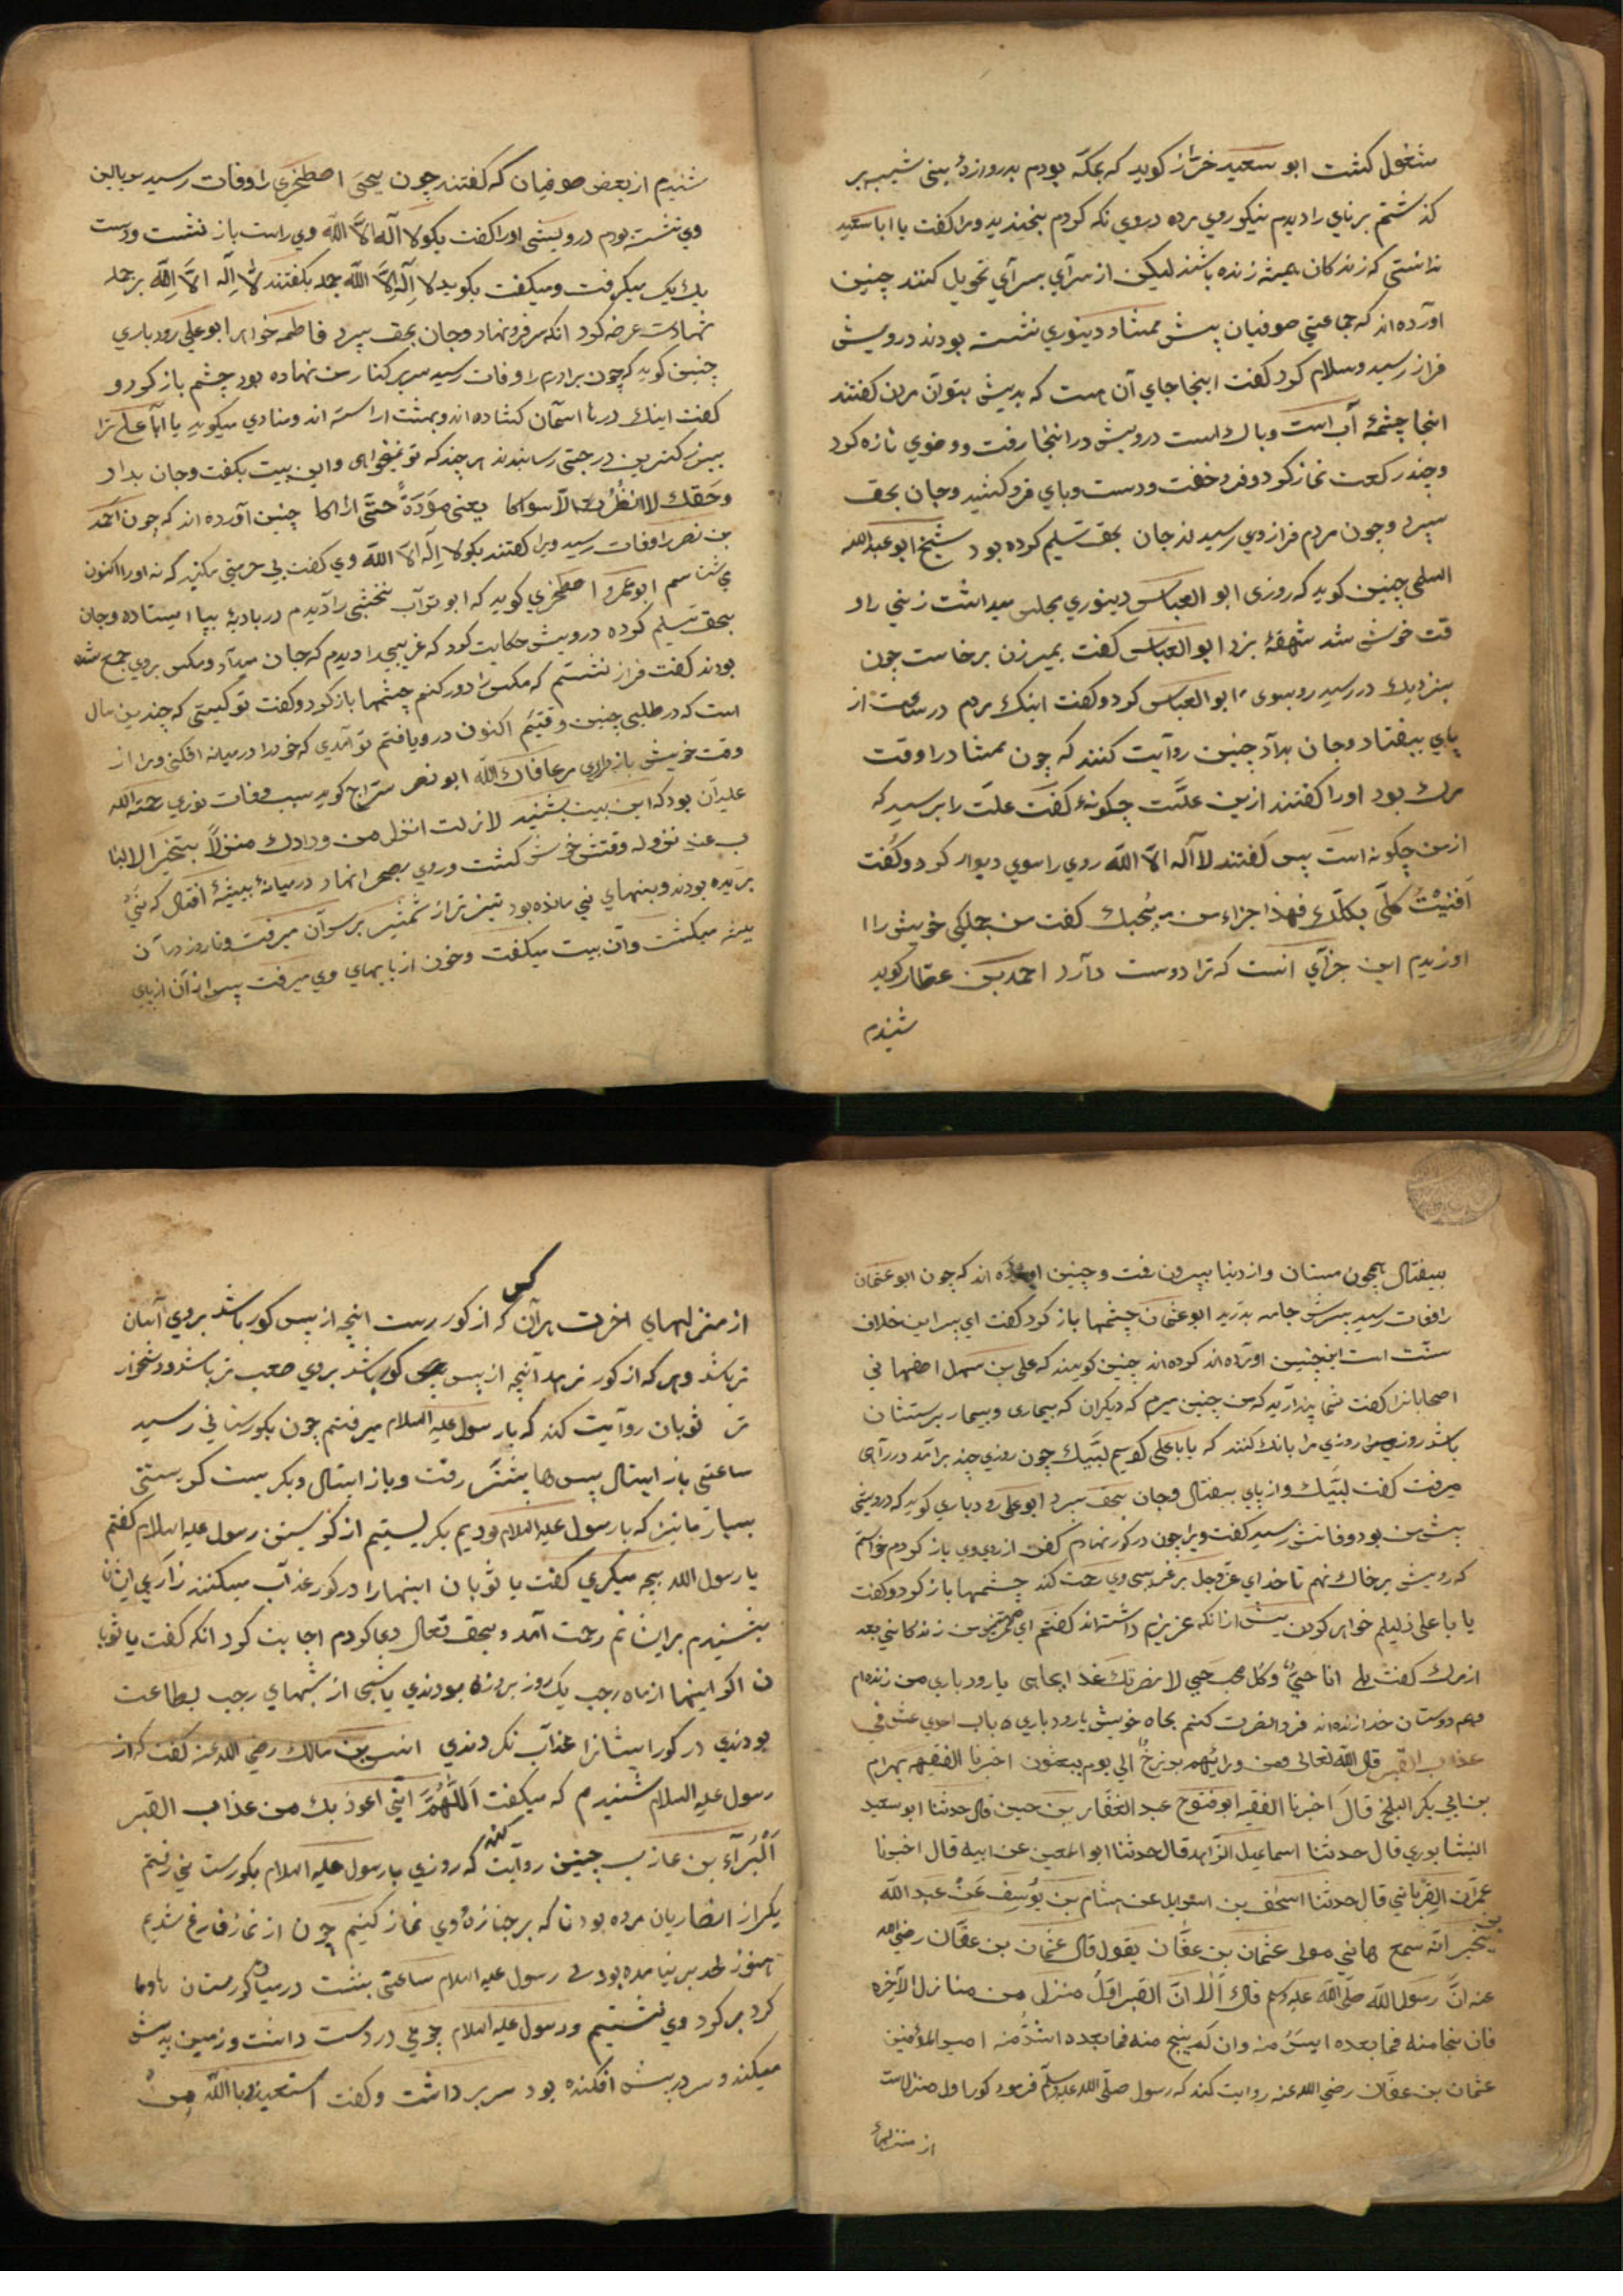 مشغول کشت ابو سعید خرّاز کوید که بمکّه بودم بدروازهٔ بنی شیبه بر
کذشتم برنای را دیدم نیکو روی مرده در وی نکه کردم بخندید و مرا کفت یا ابا سعید
ندانستی که زندکان همیشه زنده باشند لیکن از سرآی بسرآی تحویل کنند چنین
آورده اند که جماعتی صوفیان پیش ممشاد دینوری نشسته بودند درویشی
فراز رسید و سلام کرد کفت اینجا جای آن هست که بدیش بتوان مردن کفتند
اینجا چشمهٔ آب است و پاک است درویش در اینجا رفت و وضوی تازه کرد
و چند رکعت نماز کرد و فرو خفت و دست و پای فرو کشید و جان بحق
سپرد و چون مردم فراز وی رسیدند جان بحق تسلیم کرده بود شیخ ابو عبدالله
السلمی چنین کوید که روزی ابو العباس دینوری مجلس میداشت زنی را و
قت خوش شد شهقهٔ بزد ابو العباس کفت بمیر زن برخاست چون
بنزدیک در رسید رو بسوی ابو العباس کرد و کفت اینک مردم در ساعت از
پای بیفتاد و جان بداد چنین روآیت کنند که چون ممشاد را وقت
مرک بود او را کفتند ازین علّت چکونهٔ کفت علّت را بپرسید که
از من چکونه است پس کفتند لا اله الاّ اللّه روی را سوی دیوار کرد و کفت
اَفنیْتُ کلّی بکلّک فهذا جزاء من یُحبک کفت من جملکی خویش را ا
اوزیدم این جزآی آنست که ترا دوست دآرد احمد بن عطار کوید
شنیدم
شنیدم از بعض صوفیان که کفتند چون یحیی اصطخری را وفات رسید بر بالین
وی نشسته بودم درویشی او را کفت بکو لا اله الاّ اللّه وی راست باز نشست و دست
یک یک میکرفت و میکفت بکوید لا اِلَه الاّ اللّه جمله بکفتند لا اِلَه الاّ اللّه بر جمله
شهادت عرضه کرد انکه سر فرو نهاد و جان بحق سپرد فاطمه خواهر ابو علی رودباری
چنین کوید که چون برادرم را وفات رسید سر بر کنار من نهاده بود چشم باز کرد و
کفت اینک درها آسمان کشاده اند و بهشت اراسته اند و منادی میکوید یا ابا علی ترا
ببزرکترین درجتی رسانیدند هر چند که تو نمیخواهی و این بیت بکفت و جان بداد
وحقّک لا انظُرُ الی سواکا یعنی موَدّةً حتّی اراکا چنین آورده اند که چون احمد
بن نصر را وفات رسید ویرا کفتند بکو لا اِلَه الاّ اللّه وی کفت بی حرمتی مکنید که نه او را اکنون
می شناسم ابو عمرو اصطخری کوید که ابو توآب نخشبی را دیدم در بادیهٔ بپا ایستاده و جان
بحق تسلیم کرده درویشی حکایت کرد که غریبی را دیدم که جان میدآد و مکس بروی جمع شده
بودند کفت فراز نشستم که مکس را دور کنم چشمها باز کرد و کفت تو کیستی که چندین سال
است که در طلب چنین وقتیم اکنون دریافتم تو آمدی که خود را در میانه افکنی ویرا از
وقت خویش باز داری مر عافاک اللّه ابو نصر سرّاج کوید سبب وفات نوری رحمة الله
علیه آن بود که این بیت بشنید لا زلت انزل من ودادک منزلاً یتحیّر الالبا
ب عند نزوله وقتش خوش کشت و روی بصحرا نهاد در میانهٔ بیشهٔ افتاد که نی
بریده بودند و بنهای نی مانده بود تیز تر از شمشیر بر سر آن میرفت و تا روز در آن
بیشه میکشت و آن بیت میکفت و خون از پایهای وی میرفت پس از آن از پای
بیفتال همچون مستان و از دنیا بیرون رفت و چنین آورده اند که چون ابو عثمان
را وفات رسید پسرش جامه بدرید ابو عثمان چشمها باز کرد کفت ای پسر این خلاف
سنّت است اینچنین آورده اند کرده اند چنین کویند که علی بن سهل اصفهانی
اصحابانرا کفت شما پندارید که من چنین میرم که دیکران که بیماری و بیمار پرستشان
باشد روزی مرا بانک کنند که یا با علی کویم لبّیک چون روزی چند برآمد در رآهی
میرفت کفت لبّیک و از پای بیفتال و جان بحق سپرد ابو علی رودباری کوید که درویشی
پیش من بود وفاتش رسید کفت ویرا چون در کور نهادم کفن از روی وی باز کردم خواستم
که رویش بر خاک نهم تا خدای عزّ وجل بر غریبی وی رحمت کند چشمها باز کرد و کفت
یا با علی ذلیلم خواهی کردن پیش از انکه عزیزم داشته اند کفتم ای مهترمن زندکانی بعد
از مرک کفت بلی انا حیّ وکل محب حیی لا نضرتک غدا بجاهی یا رودباری من زنده ام
و هم دوستان خدا زنده اند فردا نصرت کنم بجاه خویش یا رودباری باب احدی عشر فی
عذاب القبر قال اللّه تعالی ومن ورائهم برزخٌ الی یوم یبعثون اخبرنا الفقیهه بهرام
بن ابی بکر البلخی قالَ اخبرنا الفقیه ابو فتوح عبد الغفّار بن حسین قال حدثنا ابو سعید
النیشابوری قال حدثنا اسماعیل الزّاهد قال حدثنا ابو المعین عن ابیه قال اخبرنا
عمرّان الفریابی قال حدثنا اسحق بن اسمعیل عن هشام بن یُوسف عَن عبد اللّه
بن بخیر انّه سمع هانی مولی عثمان بن عفّان یقول قال عثمان بن عفّان رضی الله
عنه انّ رسول اللّه صلّی اللّه علیه وسلم قال اَلا انّ القبر اوّلُ منزل من منازل الآخره
فان نجا منه فما بعده ایسرُ منه وان لَم ینج منه فما بعده اشدُّ منه امیر المؤمنین
عثمان بن عفّان رضی اللّه عنه روایت کند که رسول صلّی اللّه علیه وسلّم فرمود کور اول منزلست
از منزلهاء
کس
از منزلهای اخرت هرآن که از کور رست اینچه از پس کور باشد بروی آسان
تر باشد و هر که از کور نرهد آنچه از پس کور باشد بروی صعب تر باشد و دشخوار
تر ثوبان روآیت کند که با رسول علیه السلام میرفتم چون بکورستانی رسید
ساعتی باز ایستال پس ها بیشتر رفت و باز ایستال و بکریست کریستنی
بسیار مانیز که با رسول علیه السلام بودیم بکریستیم از کریستن رسول علیه السلام کفتم
یا رسول الله بچه میکری کفت یا ثوبان اینهارا در کور عذآب میکنند زاری ایشان
بشنیدم بر ایشانم رحمت آمد و بحق تعالی دعا کردم اجابت کرد انکه کفت یا ثوبا
ن اکر اینها از ماه رجب یک روز بروزه بودندی یا شبی از شبهای رجب بطاعت
بودندی در کور ایشانرا عذآب نکردندی انس بن مالک رضی اللّه عنه کفت که از
رسول علیه السلام شنیدم که میکفت اللّهُمَّ انّی اعوذ بک من عذاب القبر
اَلْبَرآء بن عازب چنین روآیت کند که روزی با رسول علیه السلام بکورستانی رفتم
یکی از انصاریان مرده بود تا که بر جنازهٔ وی نماز کنیم چون از نماز فارغ شدیم
هنوز لحد بر نیامده بود رسول علیه السلام ساعتی بنشست در میان کورستان و ما
کرد بر کرد وی نشستیم و رسول علیه السلام چوبی در دست داشت و زمین بدیش
میکند و سر در پیش افکنده بود سر بر داشت و کفت استعیذوا باللّه من